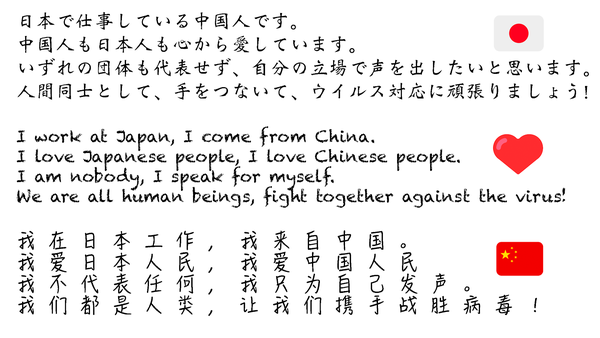 日本で仕事している中国人です。
中国人も日本人も心から愛しています。
いずれの団体も代表せず、自分の立場で声を出したいと思います。
人間同士として、手をつないて、ウイルス対応に頑張りましょう!
I work at Japan, I come from China.
I love Japanese people, I love Chinese people.
I am nobody, I speak for myself.
We are all human beings, fight together against the virus!
我在日本工作, 我来自中国。
我爱日本人民, 我爱中国人民
我不代表任何, 我只为自己发声。
我们都是人类, 让我们携手战胜病毒!